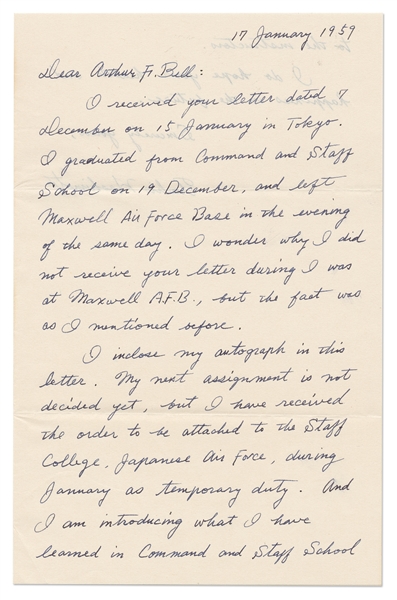 17 January 1959
Dear Arthur F. Bell:
I received your letter dated 7
December on 15 January in Tokyo.
I graduated from Command and Staff
School on 19 December, and left
Maxwell Air Force Base in the evening
of the same day. I wonder why I did
not receive your letter during I was
at Maxwell A.F.B., but the fact was
as I mentioned before.
I inclose my autograph in this
letter. My next assignment is not
decided yet, but I have received
the order to be attached to the Staff
College, Japanese Air Force, during
January as temporary duty. And
I am introducing what I have
learned in Command and Staff School